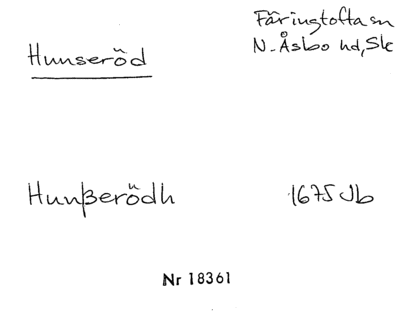 Hunseröd
Färingtofta sn
N. Åsbo hd, Sk
Hunßerödh
1675 Jb
Nr 18361